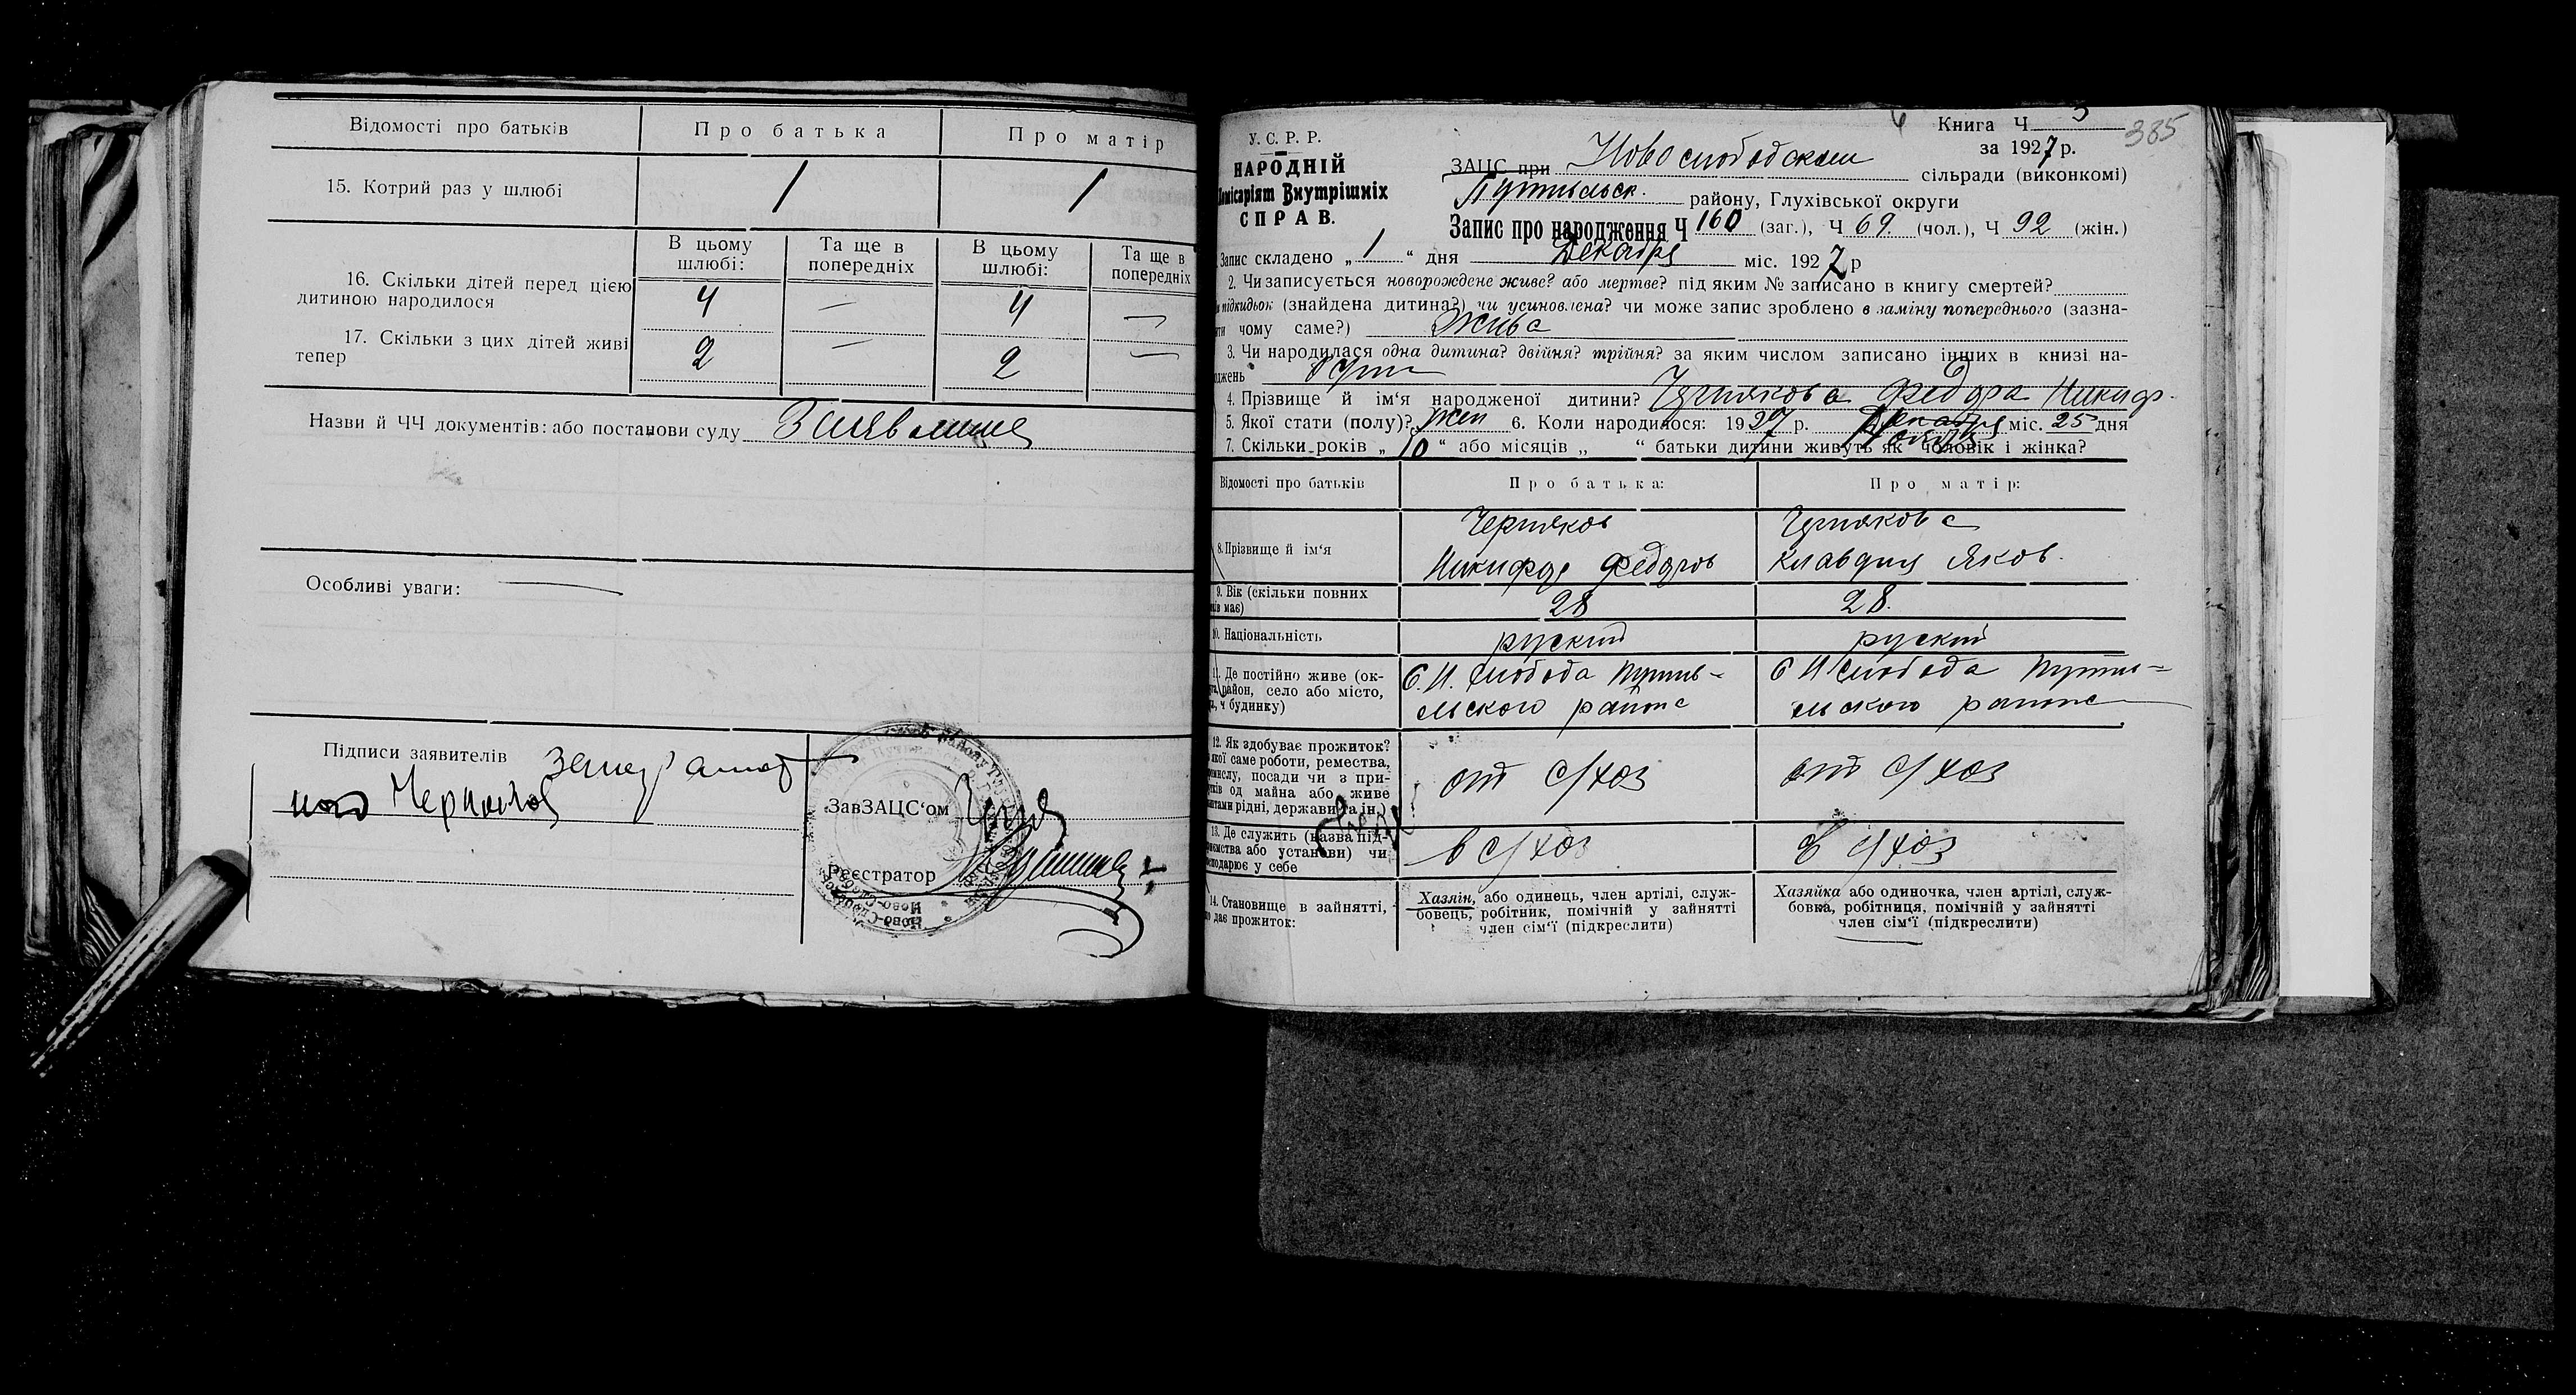 Відомості про батьків
Про батька
Про матір
15. Котрий раз у шлюбі
/
/
В цьому шлюбі:
Та ще в попередніх
В цьому шлюбі:
Та ще в попередніх
16. Скільки дітей перед цією дитиною народилося
4
—
4
—
17. Скільки з цих дітей живі тепер
2
—
2
—
Назви й ЧЧ документів: або постанови суду
Особливі уваги: —
Підписи заявителів
ЗавЗАЦС‘ом
Реєстратор
У. С. Р. Р.
НАРОДНІЙ
Комісаріят Внутрішніх
СПРАВ.
Книга Ч 3
385
за 1927 р.
ЗАЦС при Новослободском сільради (виконкомі)
Путивльск. району, Глухівської округи
Запис про народження Ч 160 (заг.), Ч 69 (чол.), Ч 92 (жін.)
Запис складено „ 1 “ дня Декабря міс. 1927 р
2. Чи записується новорождене живе? або мертве? під яким № записано в книгу смертей?
підкидьок (знайдена дитина?) чи усиновлена? чи може запис зроблено в заміну попереднього (зазна-
чити чому саме?) Жива
3. Чи народилася одна дитина? двійня? трійня? за яким числом записано інших в книзі на-
роджень
4. Прізвище й ім‘я народженої дитини? Чернякова Федора Никиф.
5. Якої статі (полу)? жен 6. Коли народилося: 1927 р. міс. 25 дня
7. Скільки років „ 10 “ або місяців „ “ батьки дитини живуть як чоловік і жінка?
Відомості про батьків
Про батька:
Про матір:
8. Прізвище й ім‘я
Черняков
Никифор Федоров
Чернякова
Клавдия Яков.
9. Вік (скільки повних
років має)
28
28.
10. Національність
руский
руский
11. Де постійно живе (ок-
руга, район, село або місто,
ч будинку)
С. Н. Слобода Путив-
льского района
С Н Слобода Путив-
льского района
12. Як здобуває прожиток?
з якої саме роботи, ремества,
промислу, посади чи з при-
бутків од майна або живе
коштами рідні, держави та ін.)
от с/хоз
от с/хоз
13. Де служить (назва під-
приємства або установи) чи
господарює у себе
в с/хоз
в с/хоз
14. Становище в зайнятті,
що дає прожиток:
Хазяін, або одинець, член артілі, служ-
бовець, робітник, помічній у зайнятті
член сім‘ї (підкреслити)
Хазяйка або одиночка, член артілі, служ-
бовка, робітниця, помічній у зайнятті
член сім‘ї (підкреслити)